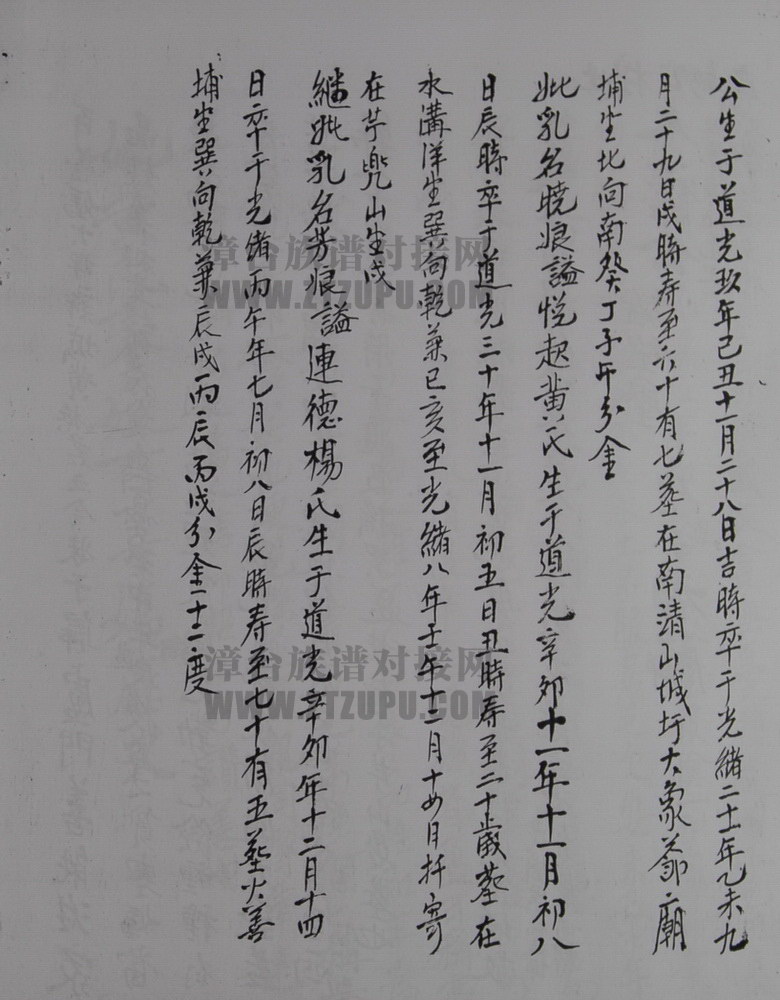 公生于道光玖年己丑十一月二十八日吉時卒于光緒二十一年乙未九
月二十九日戌時寿至六十有七塟在南清山城圩大象爺廟
埔坐北向南癸丁子午分金
妣乳名晓娘謚悦起黄氏生于道光辛卯十一年十一月初八
日辰時卒于道光三十年十一月初五日丑時寿至二十歲塟在
水溝洋坐巽向乾兼巳亥至光緒八年壬午十二月十四日扦寄
在芋兜山坐戌
継妣乳名芳娘謚連德楊氏生于道光辛卯年十二月十四
日卒于光緒丙午年七月初八日辰時寿至七十有五塟火善
埔坐巽向乾兼辰戌丙辰丙戌分金十二度
漳台族谱对接网
WWW.ZTZUPU.COM
漳台族谱对接网
WWW.ZTZUPU.COM